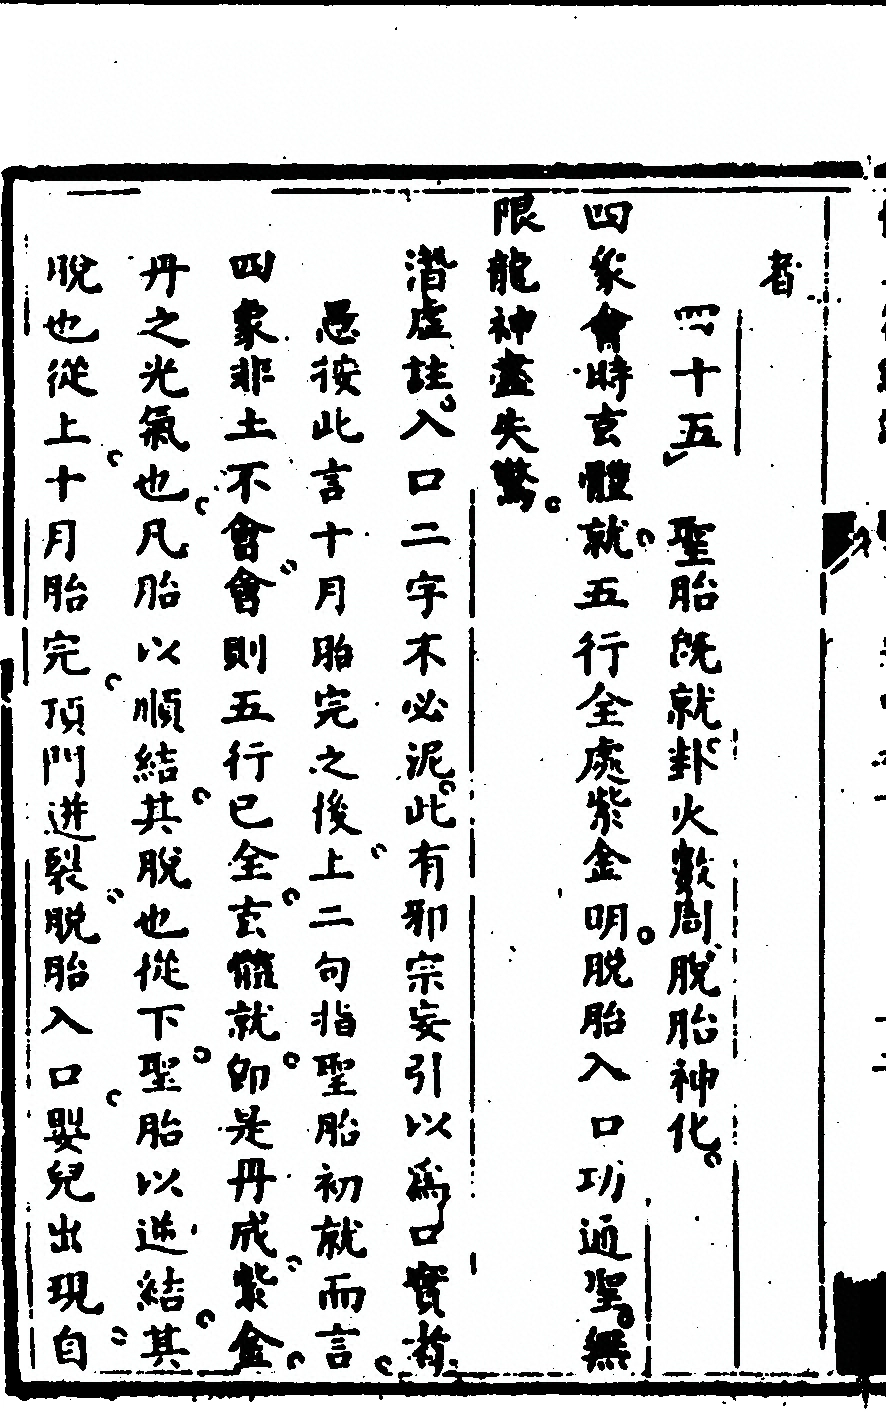 者
四十五　聖胎旣就卦火數周脫胎神化
四象會時玄體就五行全處紫金明脫胎入口功通聖無
限龍神盡失驚
潛虛註入口二字不必泥此有邪宗妄引以為口實者
愚按此言十月胎完之後上二句指聖胎初就而言
四象非土不會會則五行已全玄體就即是丹成紫金
丹之光氣也凡胎以順結其脫也從下聖胎以逆結其
脫也從上十月胎完頂門迸裂脫胎入口嬰兒出現自